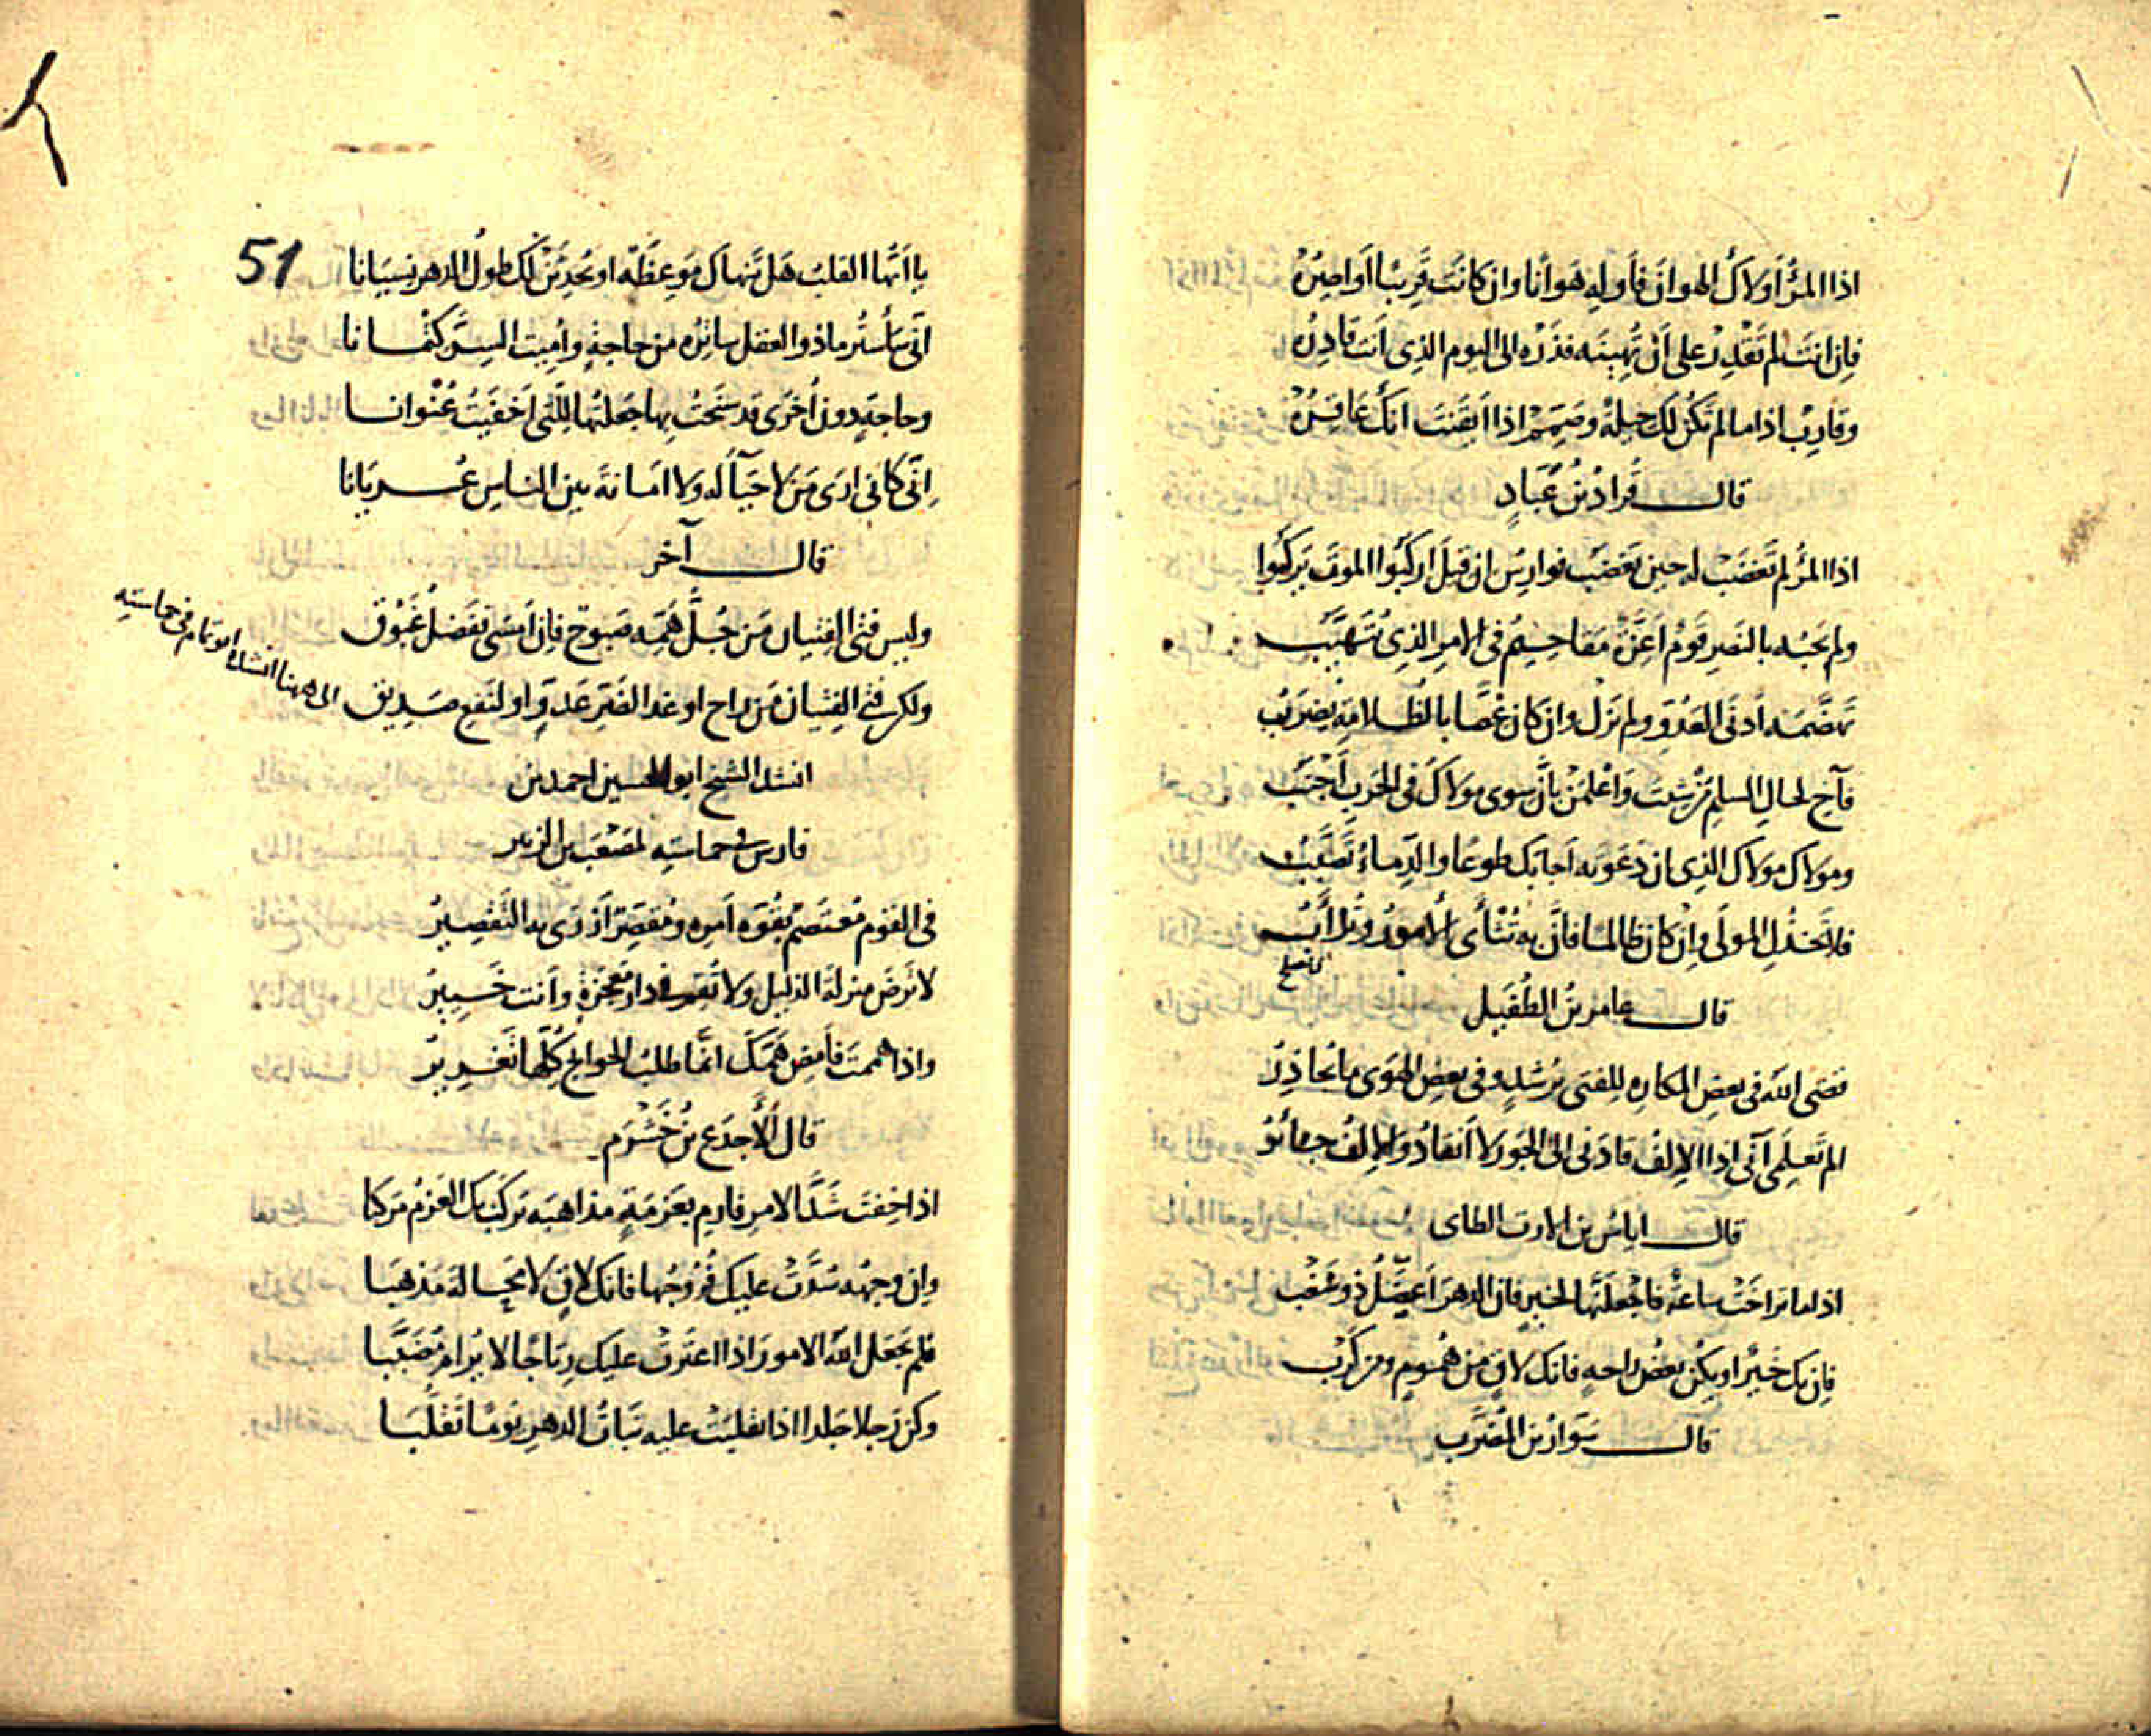 اذا المرُٔ اَولاكَ الهوانَ فاَولهِ هَوانا وان كانَت قَرِيبًا اَواصِرُهْ
فاِن انتَ لم تَقْدِرْ على اَنْ تُهِينَه فذَرْه الى اليوم الذى اَنتَ قادِرُه
وقارِبْ اذا مالم تكُن لك حِيلةٌ وصَمِّمْ اذا اَيقَنتَ انكَ عَاقِرُهْ
قال قُرادُ بنُ عَبَّادٍ
اذا المرُٔ لم تَغضَبْ له حين يَغضَبُ فوارِسُ ان قيلَ اركَبُوا الموتَ يَركَبُوا
ولم يَحبُه بالنَصرِ قومٌ اَعِزَّةٌ مَقاحِيمُ فى الامرِ الذى يُتَهَيَّبُ
تهَضَّمَه اَدنَى العَدُوِّ ولم يَزَلْ وان كان عِضًّا بالظلامةِ يُضرَبُ
فآخِ لحالِ السلمِ مَن شِئتَ وَاعْلَمَنْ باَنَّ سوى مولاكَ فى الحَربِ اَجنَبُ
ومَولاكَ مولاكَ الذى ان دَعَوتَه اَجابَك طوعًا والدِماءُ تَصَبَّبُ
فلا تَخذُلِ المولَى واِن كان ظالما فانَّ به تُثْأَى الامورُ وتُرْأَبُ
اى تصلح
قال عامر بنُ الطُفَيل
قضَى اللّٰه فى بعضِ المكارِه للفتى برُشدٍ وفى بعضِ الهوَى ما يُحاذِرُ
الم تَعلَمِى اَنّى اذا الاِلفُ قادَنى الى الجَورِ لا اَنقادُ والاِلفُ جائرُ
قال اياسُ بن الارت الطاى
اذا ما تراخَتْ ساعةٌ فاجعَلَنَّها لخيرٍ فان الدهرَ اَعصَلُ ذو شَغْبِ
فاِن يك خَيرٌ او يكُن بعضُ راحةٍ فانك لاقٍ من هُمومٍ ومن كَرْبِ
قال سَوّارُ بن المُضَرَّب
51
يا اَيُّها القلبُ هَل تَنهاكَ مَوعِظَةٌ او يُحدِثَنْ لكَ طولُ الدهرِ نِسيَانا
اِنّى سأَستُر ما ذو العقل ساتِرُه من حاجةٍ واُمِيتُ السِرَّ كتمانا
وحاجةٍ دون اُخرَى قد سَنَحتُ بها جَعَلتُها لِلّتى اَخفَيتُ عُنْوانا
اِنّى كاَنى ارَى مَن لا حَياءَ له ولا امَانةَ بين الناسِ عُريَانا
قال آخر
وليس فتى الفِتيان مَن جُلُّ هَمِّه صَبوحٌ فاِن اَمسَى ففَضلُ غَبُوقِ
ولكن فتى الفِتيان مَن راح او غدا لضَرِّ عَدُوٍّ او لنَفعِ صَدِيق
الى ههنا انشده ابو تمام فى حماسته
انشد الشيخ ابو الحسين احمد بن
فارس فى حماسته لمُصْعَب بن الزبير
فى القَوم مُعتَصِمٌ بقُوَّةِ اَمرِه ومُقصِّرٌ اَزْرَى به التَقصِيرُ
لا تَرضَ منزلةَ الذليل ولا تُقِم فى دارِ مَعجَزةٍ وَاَنت خَبِيرُ
واذا هممتَ فاَمضِ هَمَّكَ انّما طلبُ الحوائجِ كلُّها تَغريرُ
قال الاَجدَع بنُ خَشْرَم
اذا خِفتَ شَدَّا الامرِ فارمِ بعَزمَةٍ مذاهبَه يَركَبْ بك العَزمُ مَركبا
واِن وجهةٌ سُدَّتْ عليك فُرُوجُها فانك لاقٍ لا مَحَالةَ مَذهبَا
فلم يَجعَل اللّٰه الامورَ اذا اعتَرتْ عليك رِتاجًا لا يُرامُ مُضَبَّبا
وكن رَجلا جَلدا اذا تقلبَتْ عليه بَناتُ الدهرِ يومًا تَقلَّبا